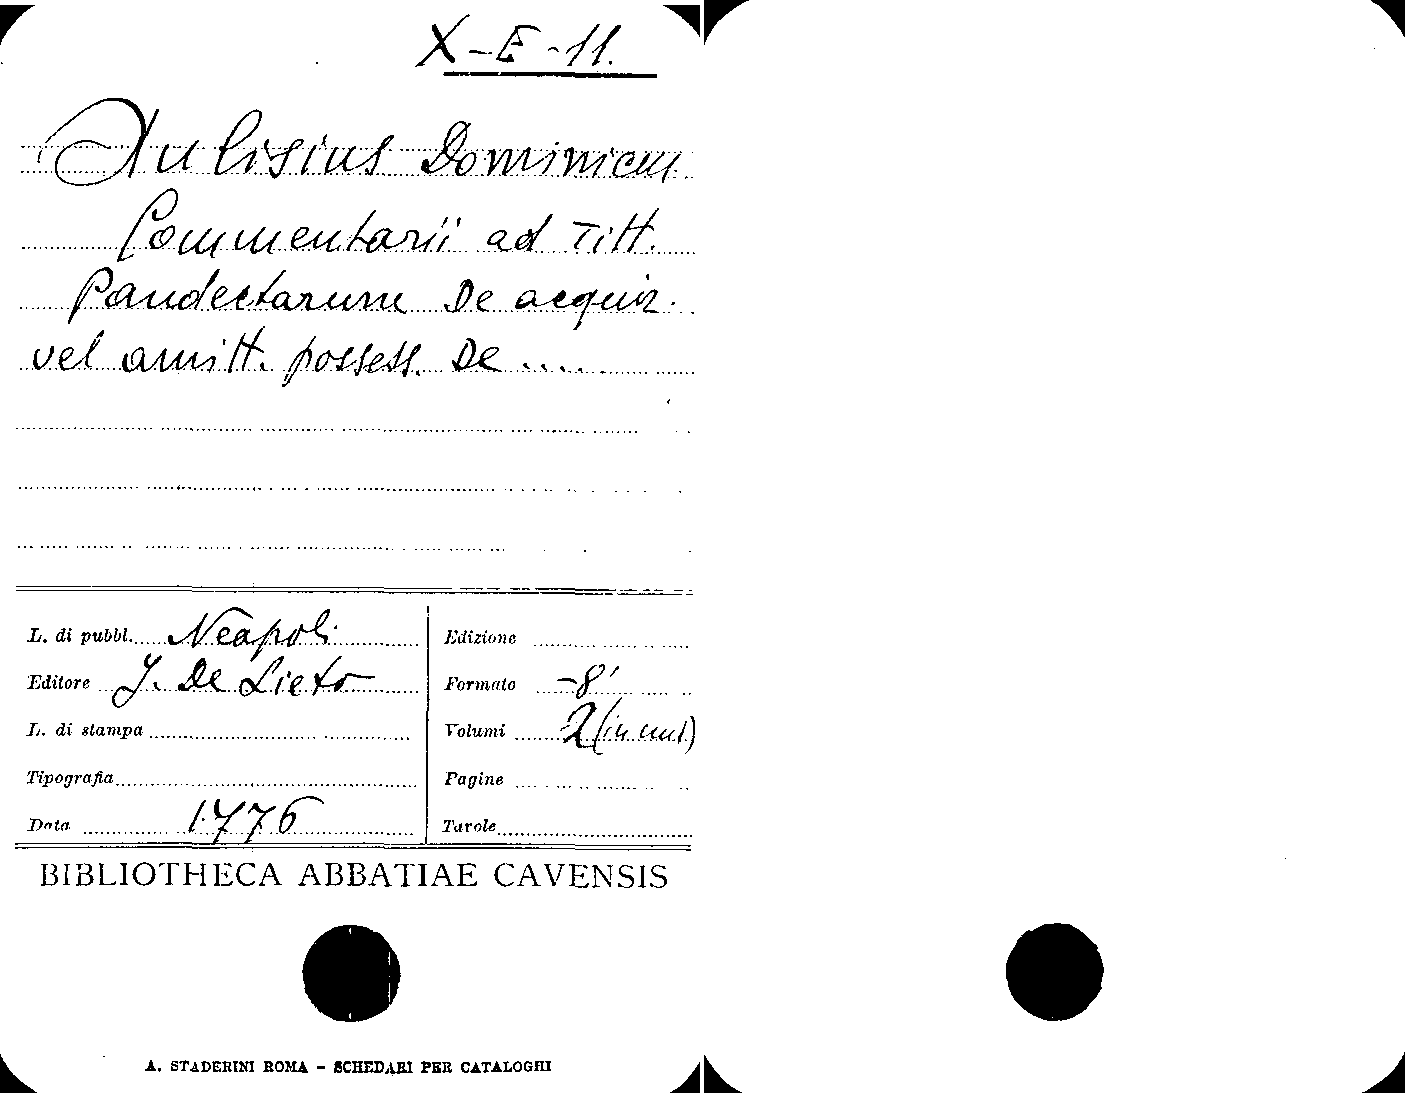 X-E-11.
Aulisius Dominicus
Commentarii ad Titt.
Pandectarum De acquir.
vel amitt. possess. De .....
L. di pubbl. Neapoli
Editore J. De Lieto
L. di stampa
Tipografia
Data 1776
Edizione
Formato -8'
Volumi 2 (in un1)
Pagine
Tavole
BIBLIOTHECA ABBATIAE CAVENSIS
A. STADERINI ROMA - SCHEDARI PER CATALOGHI